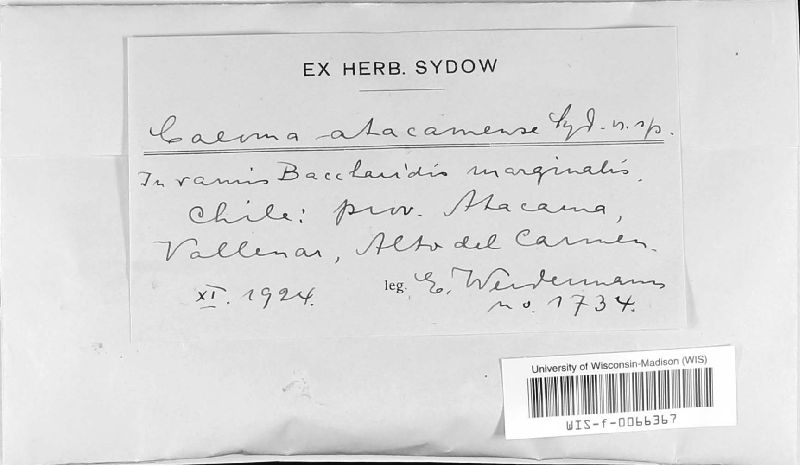 EX HERB. SYDOW
Caeoma atacamense Syd. n. sp.
In ramis Baccharidis marginalis.
Chile: prov. Atacama,
Vallenar, Alto del Carmen.
XI. 1924. leg. E. Werdermann
no. 1734.
University of Wisconsin-Madison (WIS)
WIS-f-0066367